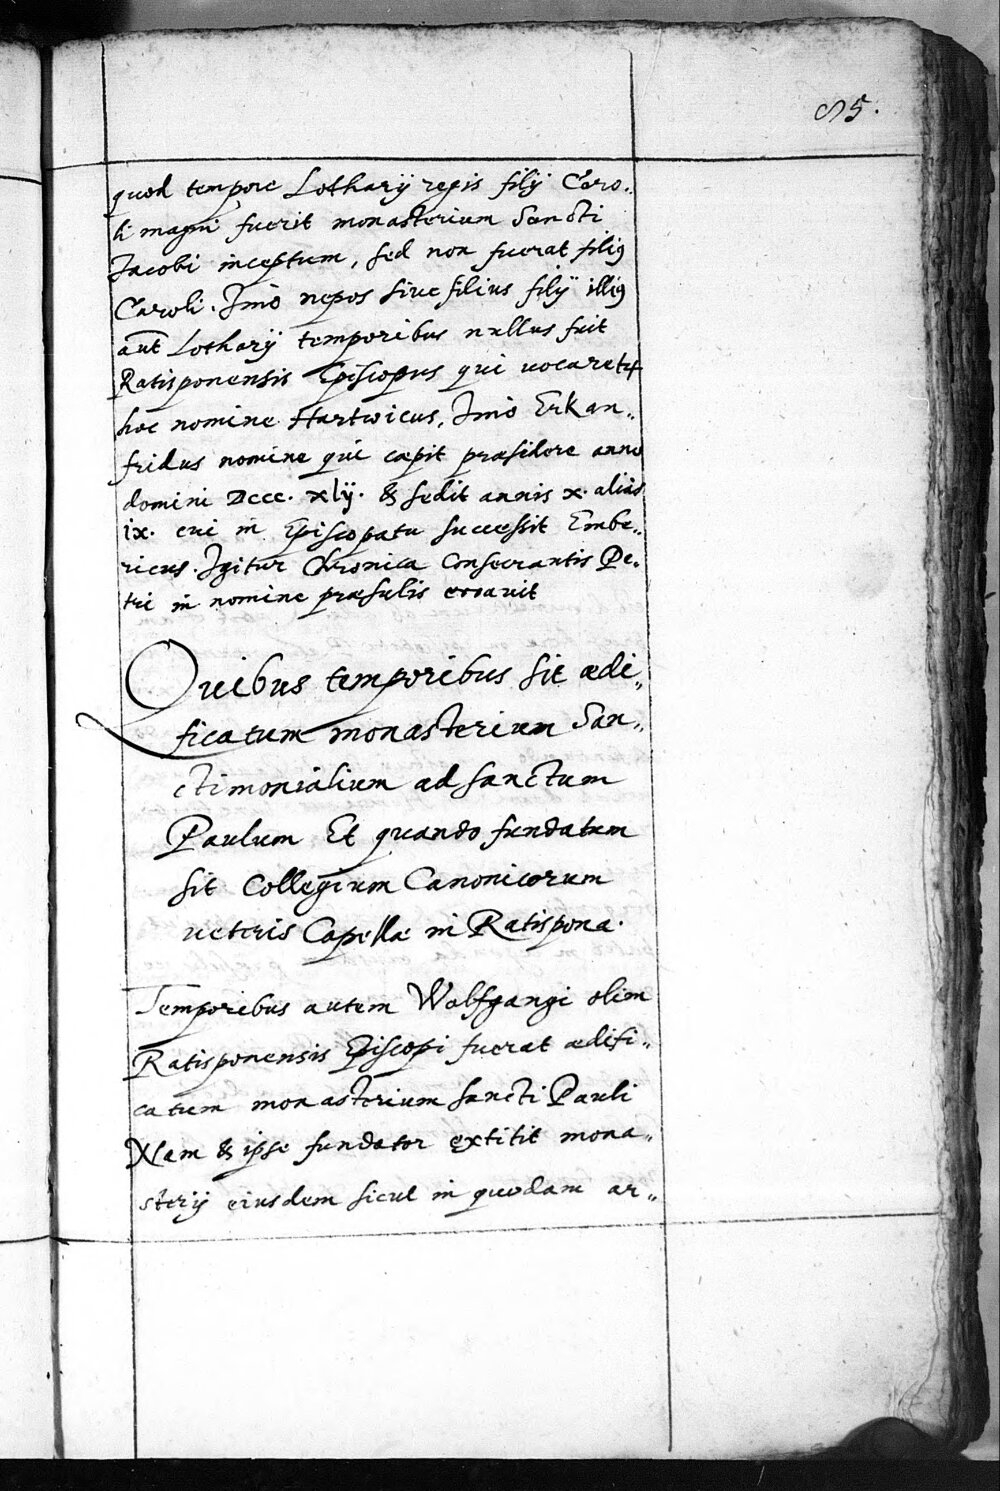 85.
quod tempore Lotharÿ regis filÿ Caro„
li magni fuerit monasterium Sancti
Jacobi inceptum, sed non fuerat filiꝰ
Caroli. Imò nepos siue filius filÿ illiꝰ
aūt Lotharÿ temporibus nullus fuit
Ratisponensis Episcopus qui uocaretur
hoc nomine Hartwicus, Imò Erkan„
fridus nomine qui cæpit præsidere anno
domini DCCC. xlÿ. & sedit annis x. aliàs
ix. cui in Episcopatu successit Embe„
ricus. Igitur Chronica Consecrantis Pe„
tri in nomine præsulis errauit
Quibus temporibus sit ædi„
ficatum monasterium San„
ctimonialium ad sanctum
Paulum Et quando fundatum
sit Collegium Canonicorum
ueteris Capellæ in Ratispona.
Temporibus autem Wolfgangi olim
Ratisponensis Episcopi fuerat ædifi„
catum monasterium sancti Pauli
Nam & ipse fundator extitit mona„
sterÿ eiusdem sicut in quodam ar„